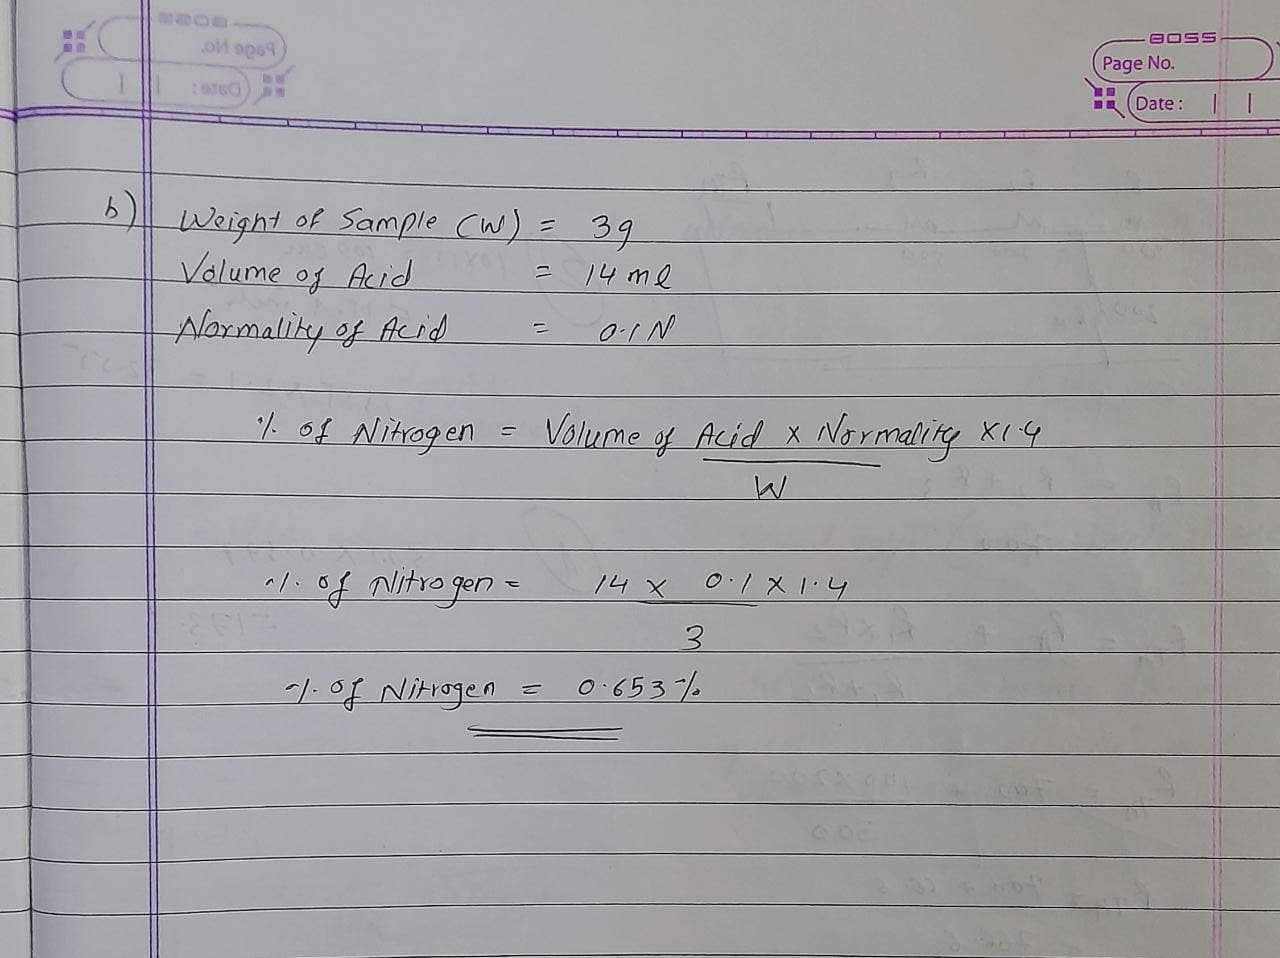 BOSS
Page No.
Date :
b) Weight of Sample (W) = 3g
Volume of Acid = 14 ml
Normality of Acid = 0.1 N
% of Nitrogen = Volume of Acid x Normality x 1.4
W
% of Nitrogen = 14 x 0.1 x 1.4
3
% of Nitrogen = 0.653%